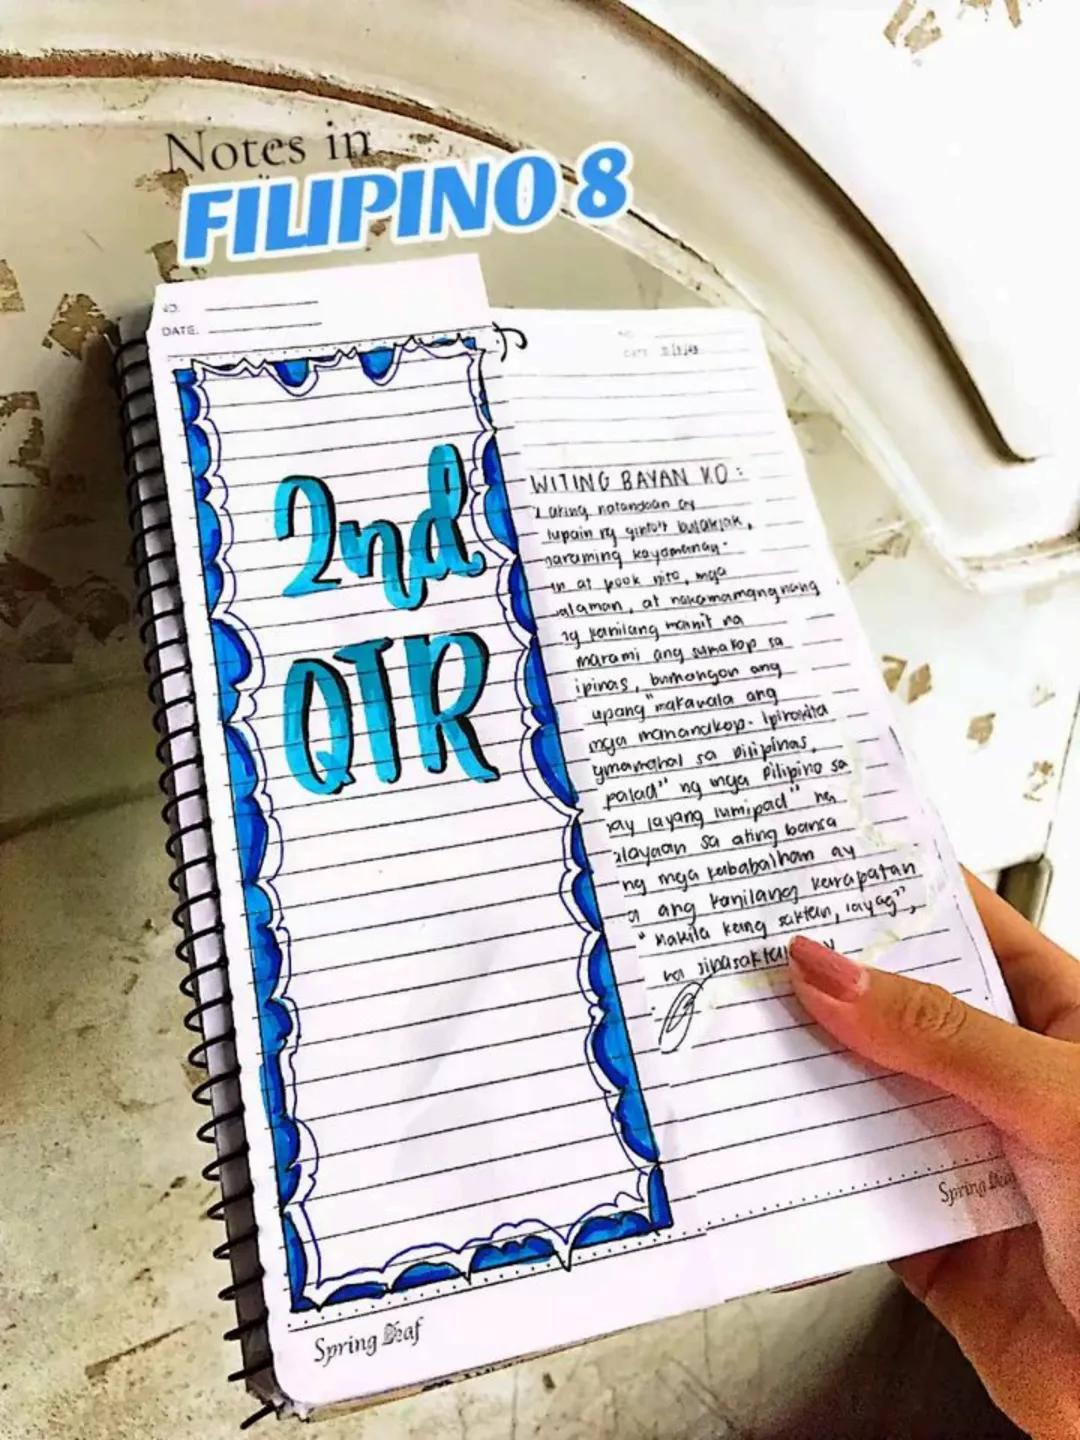 Notes in
FILIPINO 8
NO.
DATE:
2nd
QTR
WITING BAYAN KO :
ating natandaan ay
lupain ng ginto't bulaklak,
naraming kayamanan.
in at pook nito, mga
alaman, at nakamamanghang
ng kanilang mainit na
marami ang sumakop sa
ipinas, bumangon ang
upang "makawala ang
mga mananakop. Ipinakita
gmamahal sa Pilipinas.
palad" ng mga Pilipino sa
ay layang lumipad" na
alayaan sa ating bansa
ng mga kababaihan ay
a ang kanilang karapatan
" Makita kang saktan,
na sinasaktan
Spring Leaf
Spring Leaf